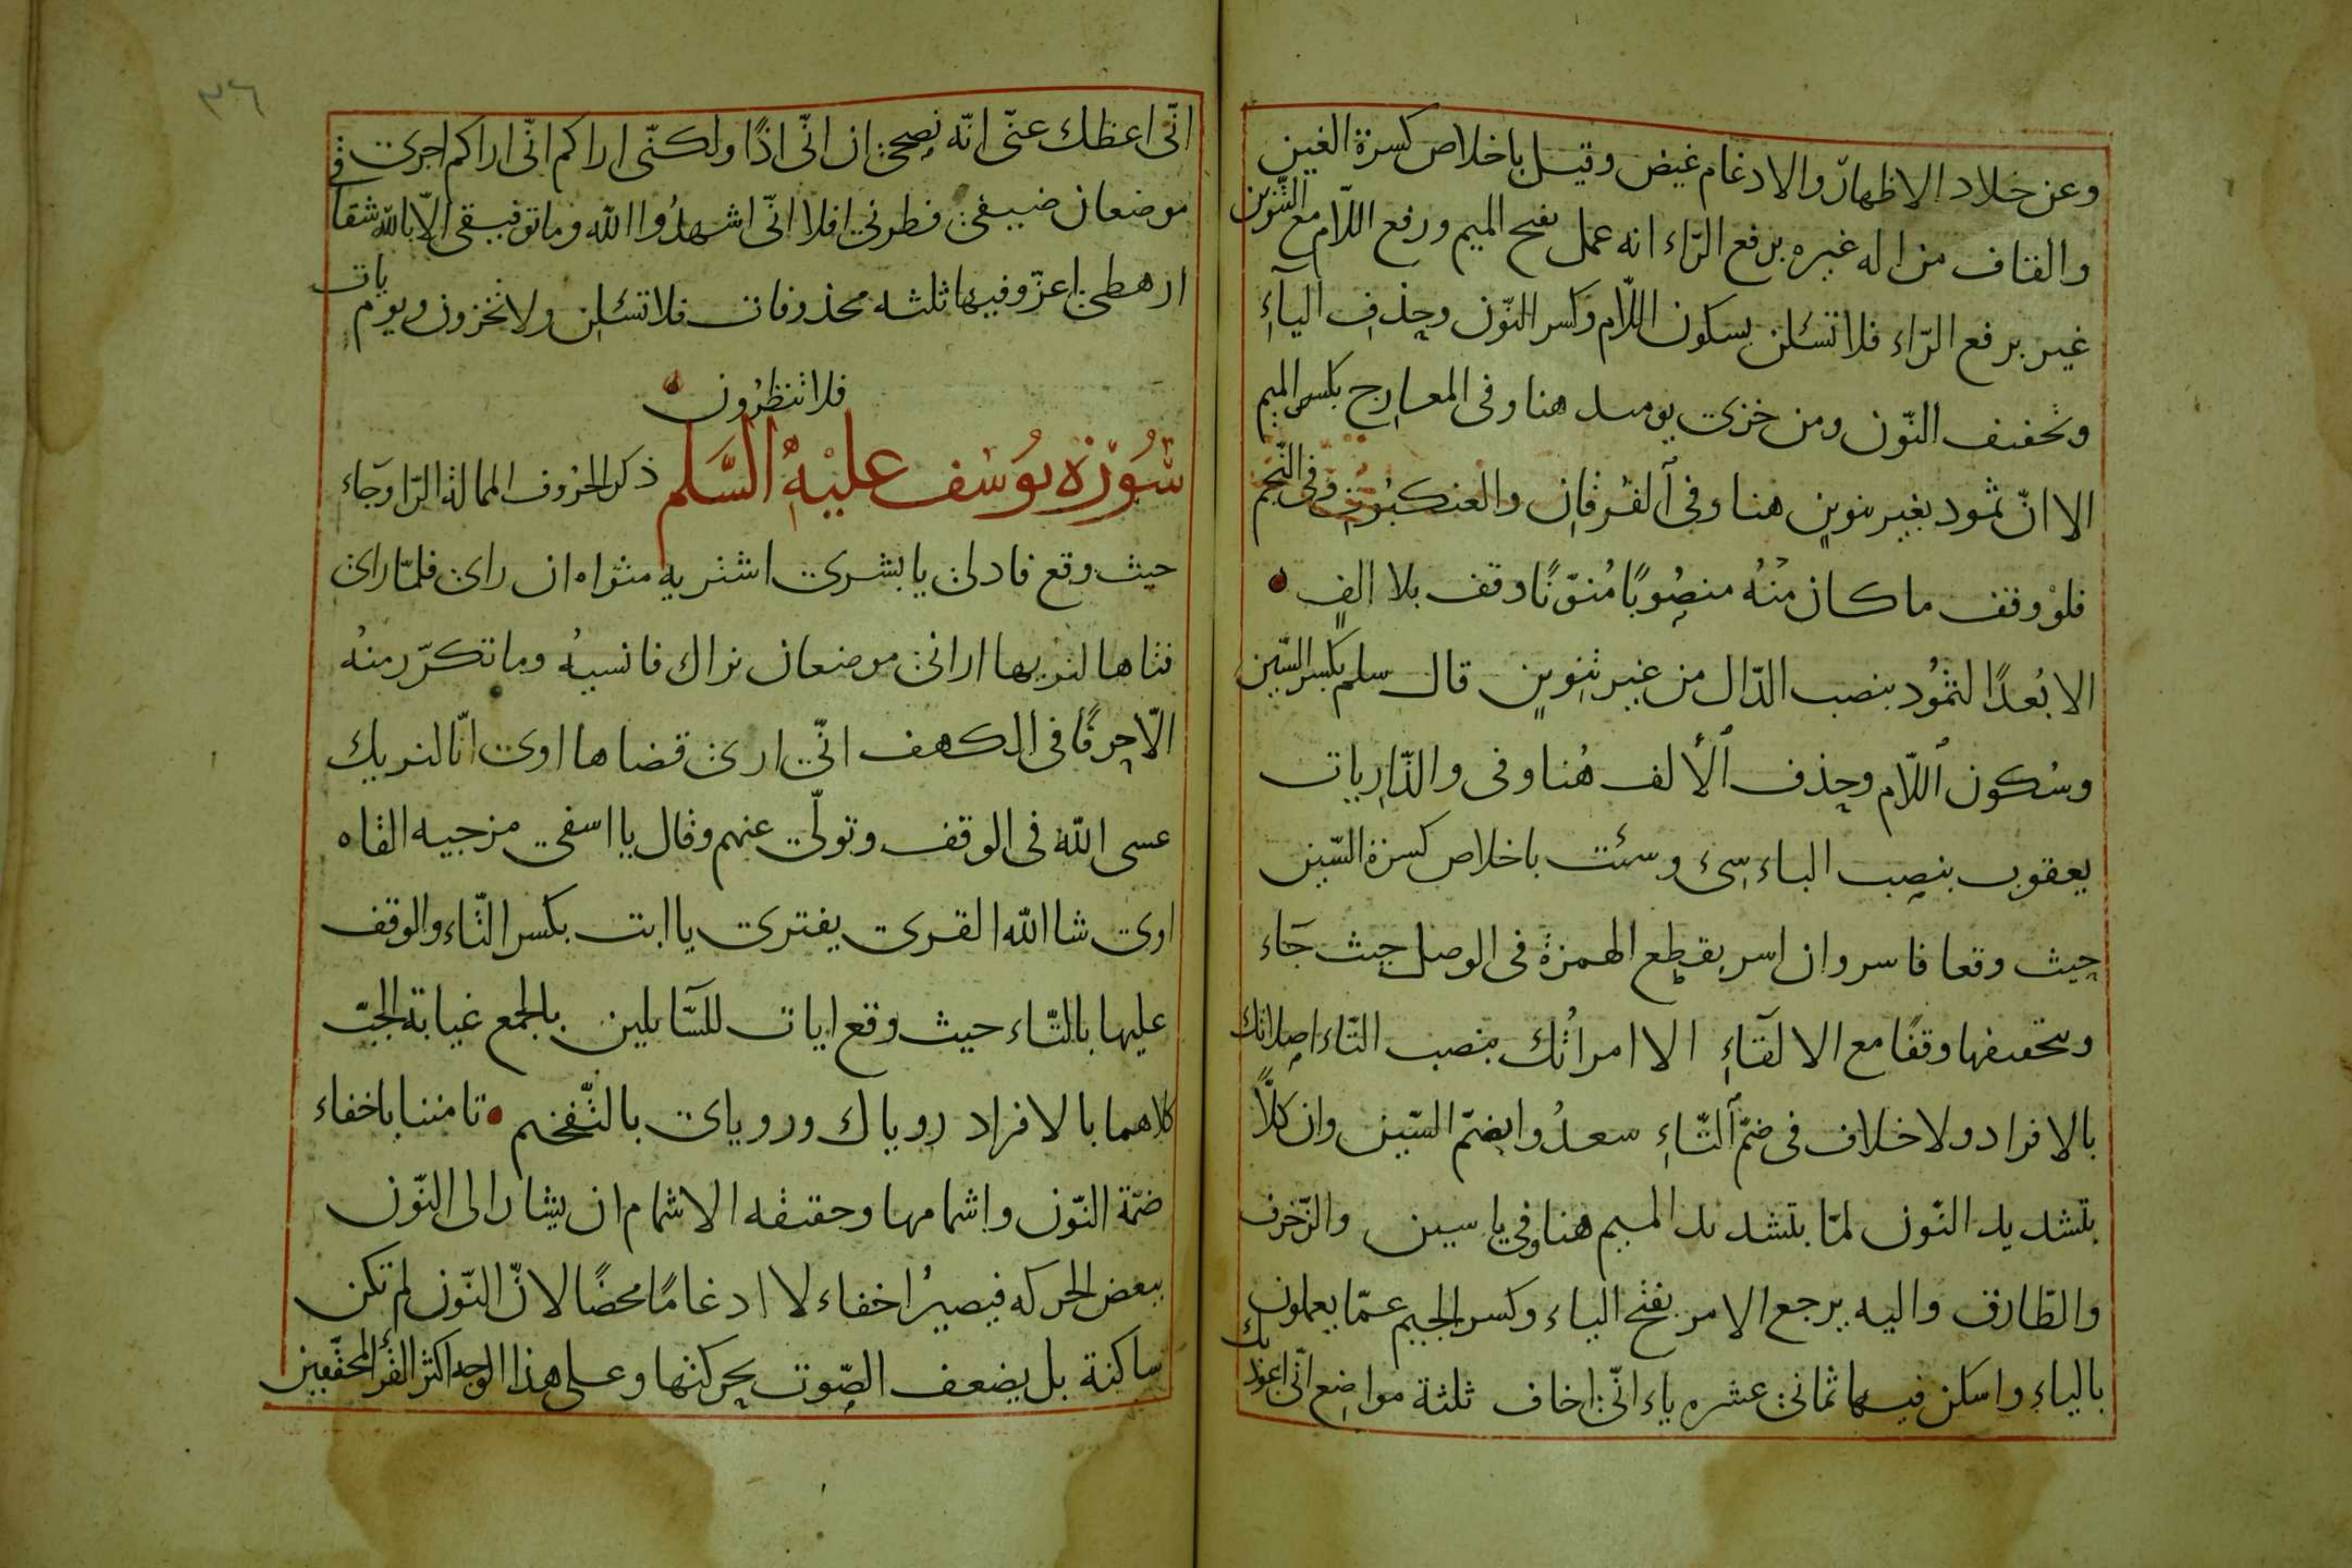 وعن خلاد الاظهار والادغام غيض وقيل باخلاص كسرة الغين
والقاف من اله غيره برفع الراء انه عمل بفتح الميم ورفع اللّام مع التنوين
غير برفع الرّاء فلا تسئلن بسكون اللّام وكسر النّون وحذف الياءِ
وتخفيف النّون ومن خزى يومئذ هنا وفى المعارج بكسر الميم
الا انّ ثمود بغير تنوين هنا وفى الفرقان والعنكبوت وفى النّجم
فلو وقف ما كان منهُ منصُوبًا مُنوّنًا وقف بلا الفٍ
الا بُعدًا لثمُود بنصب الدّال من غير تنوين قال سلم بكسر السّين
وسُكون اللّام وحذف الألف هُنا وفى والذّاريات
يعقوب بنصب الباء سىء وسئت باخلاص كسرة السّين
حيث وقعا فاسر وان اسر بقطع الهمزة فى الوصل حيث جَاء
وتخفيفها وقفًا مع الالقَاءِ الا امراتُك بنصب التاء اصلاتك
بالافراد ولا خلاف فى ضمّ التّاءِ سعدُوا بضمّ السّين وان كلاًّ
بتشديد النّون لمّا بتشديد الميم هنا وفى ياسين والزّخرف
والطّارق واليه يرجع الامر بفتح الياء وكسر الجيم عمّا يعملون
بالياءِ واسكن فيها ثمانى عشره ياء انّى اخاف ثلثة مواضع انّى اعوذ بك
٣٦
انّى اعظك عنّى انّه نصحى ان انّى اذًا ولكنّى اراكم انّى اراكم اجرى فى
موضعان ضيفى فطرنى افلا انّى اشهدُوا الله وما توفيقى الّا بالله شقا
ارهطى اعزّ وفيها ثلثه محذوفات فلا تسئلن ولا تخزون ويوم يات
فلا تنظرُون
سُورَة يوُسُف عليْهِ السَّلم ذكر الحرُوف الممالة الرّا وجَاء
حيث وقع فادلى يا بشرى اشتريه مثواه ان راى فلمّا راى
فتاها لنريها ارانى موضعان نراك فانسيهُ وما تكرّر منهُ
الّا حرفًا فى الكهف انّى ارى قضاها اوى انّا لنريك
عسى الله فى الوقف وتولّى عنهم وقال يا اسفى مزجيه القاه
اوى شا الله القرى يفترى يا ابت بكسر التّاء والوقف
عليها بالتّاء حيث وقع ايات للسَّايلين بالجمع غيابة الجبّ
كلاهما بالافراد روياك وروياى بالتّفخيم تامننا باخفاء
ضمّة النّون واشمامها وحقيقه الاشمام ان يشار الى النّون
ببعض الحركه فيصيرُ اخفاء لا ادغامًا محضًا لانّ النّون لم تكن
ساكنة بل يضعف الصّوت بحركتها وعلى هذا الوجه اكثر القرّاء المحقّقين